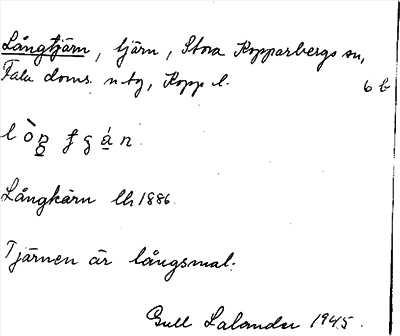 Långtjärn, tjärn, Stora Kopparbergs sn,
Falu doms. n tg, Kopp l.
6 b
Långkärn lh 1886
Tjärnen är långsmal.
Gull Lalander 1945.